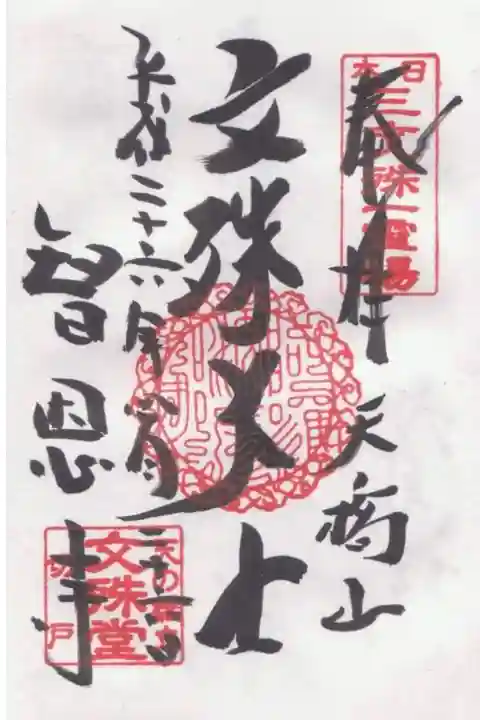 奉拝
天橋山
文殊大士
平成二十六年八月二十六日
智恩寺
日本三文殊一霊場
天の橋立
文殊堂
切戸